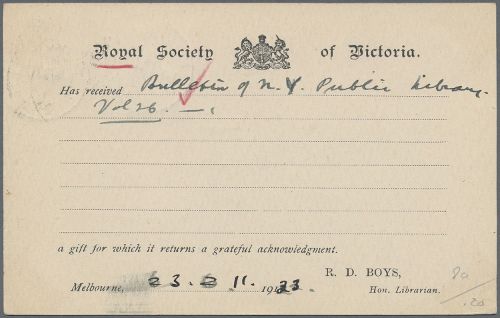 Royal Society of Victoria.
Has received Bulletin of N. Y. Public Library.
Vol 26. —.
a gift for which it returns a grateful acknowledgment.
R. D. BOYS,
Melbourne, 23. 11. 1923.
Hon. Librarian.
80
.20